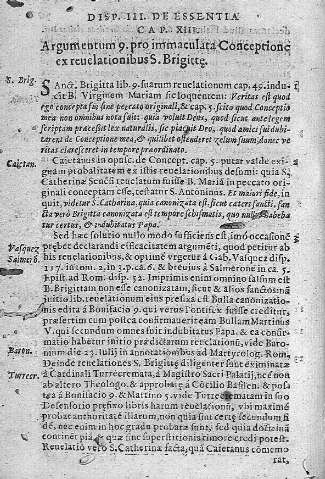 DISP. III. DE ESSENTIA
CAP. XIII.
Argumentum 9. pro immaculata Conceptione
ex reuelationibus S. Brigittę.
S. Brig.
SAnct. Brigitta lib. 9. suarum reuelationum cap. 49. induxit
B. Virginem Mariam sic loquentem: Veritas est quod
ego concepta sui sine peccato originali, & cap. 5. scito quod Conceptio
mea non omnibus nota fuit: quia voluit Deus, quod sicut ante legem
scriptam præcessit lex naturalis, sic placuit Deo, quod amici sui
de Conceptione mea, & quilibet ostenderet zelum suum, donec ve
ritas claresceret in tempore præordinato.
Caietan.
Caietanus in opusc. de Concept. cap. 5. putat valde exiguam
probabilitatem ex istis reuelationibus desumi: quia S.
Catherinæ Senensi reuelatum fuisse B. Mariã in peccato originali
conceptam esse, testatur S. Antoninus. Et maiori fide, in
quit, videtur S. Catharina, quia canonizata est, sicut cæteri sancti,
vero Brigitta canonizata est tempore schismatis, quo nullus habeba
tur certus, & indubitatus Papa.
Sed hæc solutio nullo modo sufficiens est, imò occasionẽ
prębet declarandi efficacitatem argumẽti, quod petitur ab
Vasquez
his reuelationibus, & optimè vrgetur à Gab. Vasquez disp.
Salmerõ.
117. in tom. 2. in 3. p. ca. 6. & breuius à Salmerone in ca. 5.
Epist. ad Rom. disp. 52. Imprimis enim omnino falsum est
B. Brigittam non esse canonizatam, sicut & alios sanctos: nã
initio lib. reuelationum eius prefixa est Bulla canonizationis
edita à Bonifacio 9. qui verus Pontifex fuisse creditur,
præsertim cum postea confirmauerit eam Bullam Martinus
V. qui secundum omnes fuit indubitatus Papa, & ea confirmatio
habetur initio prædictarum reuelationũ, vide Baronium
Baron.
die 23. Iulij in annotationibus ad Martyrolog. Rom.
Deinde reuelationes S. Brigittę diligenter sunt examinatę
Turrecr.
à Cardinali Turrecremata, à Magistro Sacri Palatij, nec non
ab altero Theologo & approbatę à Cõcilio Basilien. & postea
à Bonifacio 9. & Martino 5. vide Turrecrematam in suo
Defensorio prefixo libris harum reuelationũ, vbi maximè
probat
dẽ, nec enim in hoc gradu probatæ sunt, sed quia doctrinã
continet piã, quæ sine superstitionis timore credi potest.
Reuelatio verò S. Catherinę facta, quã Caietanus commemo
rat,